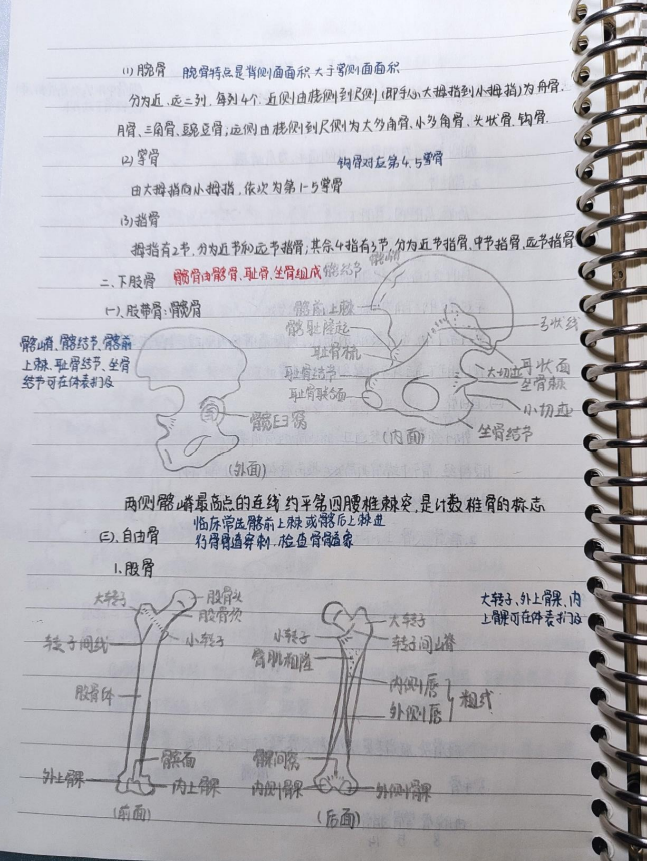 (1) 腕骨 腕骨特点是背侧面面积大于掌侧面面积
分为近、远二列，每列4个，近侧由桡侧到尺侧(即手从大拇指到小拇指)为舟骨、
月骨、三角骨、豌豆骨;远侧由桡侧到尺侧为大多角骨、小多角骨、头状骨、钩骨.
(2) 掌骨 钩骨对应第4.5掌骨
由大拇指向小拇指，依次为第1-5掌骨
(3) 指骨
拇指有2节，分为近节和远节指骨;其余4指有3节，分为近节指骨、中节指骨、远节指骨
二、下肢骨 髋骨由髂骨、耻骨、坐骨组成
髂结节
(一)、肢带骨:髋骨
髂前上棘
髂耻隆起
弓状线
髂嵴、髂结节、髂前
上棘、耻骨结节、坐骨
结节可在体表扪及
耻骨梳
耻骨结节
耻骨联合面
大切迹
耳状面
坐骨棘
小切迹
坐骨结节
髋臼窝
(外面)
(内面)
两侧髂嵴最高点的连线约平第四腰椎棘突，是计数椎骨的标志
临床常选髂前上棘或髂后上棘进
行骨髓穿刺，检查骨髓造象
(二)、自由骨
1、股骨
大转子
股骨头
股骨颈
转子间线
小转子
股骨体
髌面
外上髁
内上髁
(前面)
大转子
小转子
转子间嵴
臀肌粗隆
内侧唇
外侧唇
粗线
髁间窝
内侧髁
外侧髁
(后面)
大转子、外上髁、内
上髁可在体表扪及